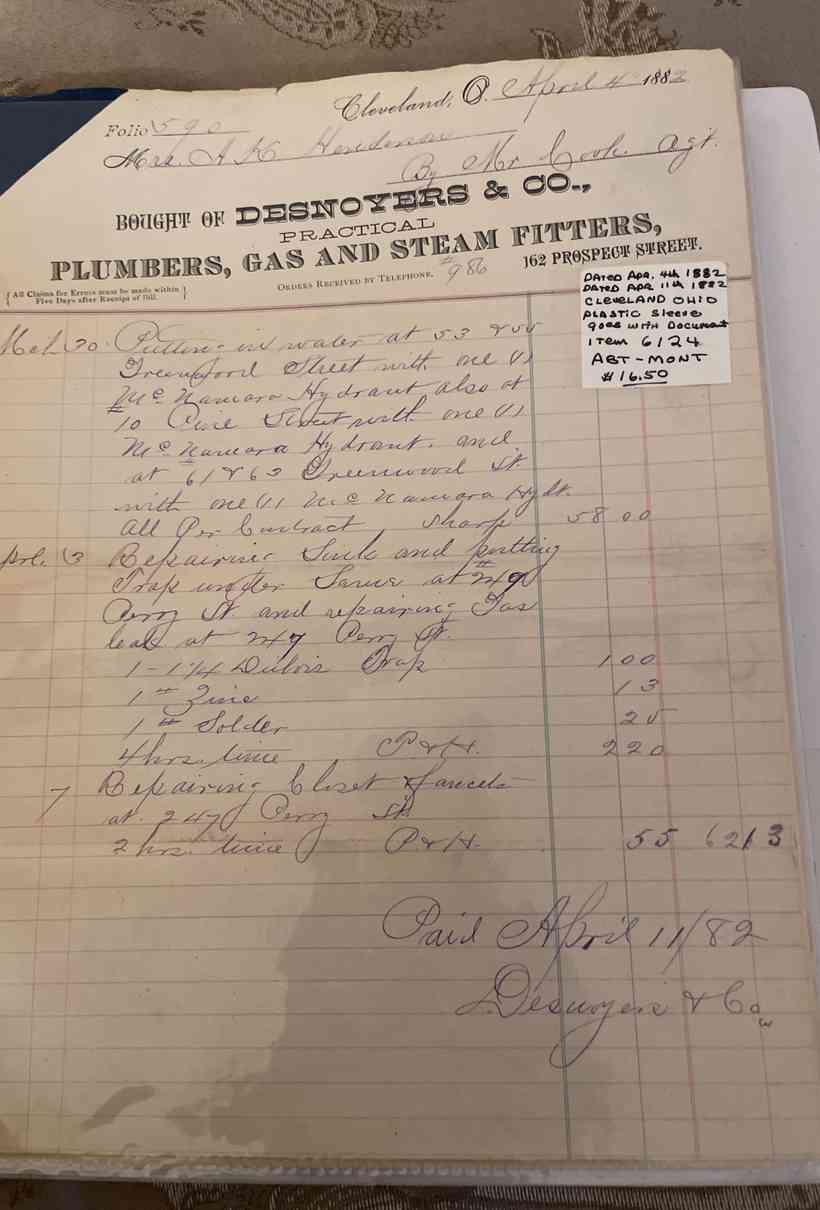 Cleveland, O. April 4 1882
Folio 590
Mrs. A K Henderson
By Mr Cook. Agt.
BOUGHT OF DESNOYERS & CO.,
PRACTICAL
PLUMBERS, GAS AND STEAM FITTERS,
{All Claims for Errors must be made within
Five Days after Receipt of Bill.}
ORDERS RECEIVED BY TELEPHONE. #986
162 PROSPECT STREET.
DATED APR. 4th 1882
DATED APR 11th 1882
CLEVELAND OHIO
PLASTIC SLEEVE
goes with Document
ITEM 6124
ABT-MONT
$16.50
Mch 30 Putting in water at 53 & 55
Greenwood Street with one (1)
McNamara Hydrant also at
#10 Pine Street with one (1)
McNamara Hydrant. and
at 61 & 63 Greenwood St.
with one (1) McNamara Hydt.
All Per Contract 58 00
Repairing Sink and putting
Trap under Same at #249
Perry St and repairing Gas
leak at 247 Perry St.
1-1 1/4 Dubois Trap 1 00
1 # Zinc 13
1 # Solder 25
4 hrs. time P & H. 2 20
7 Repairing Closet & faucets
at 247 Perry St.
2 hrs. time P & H. 55 62 13
Paid April 11/82
Desnoyers & Co